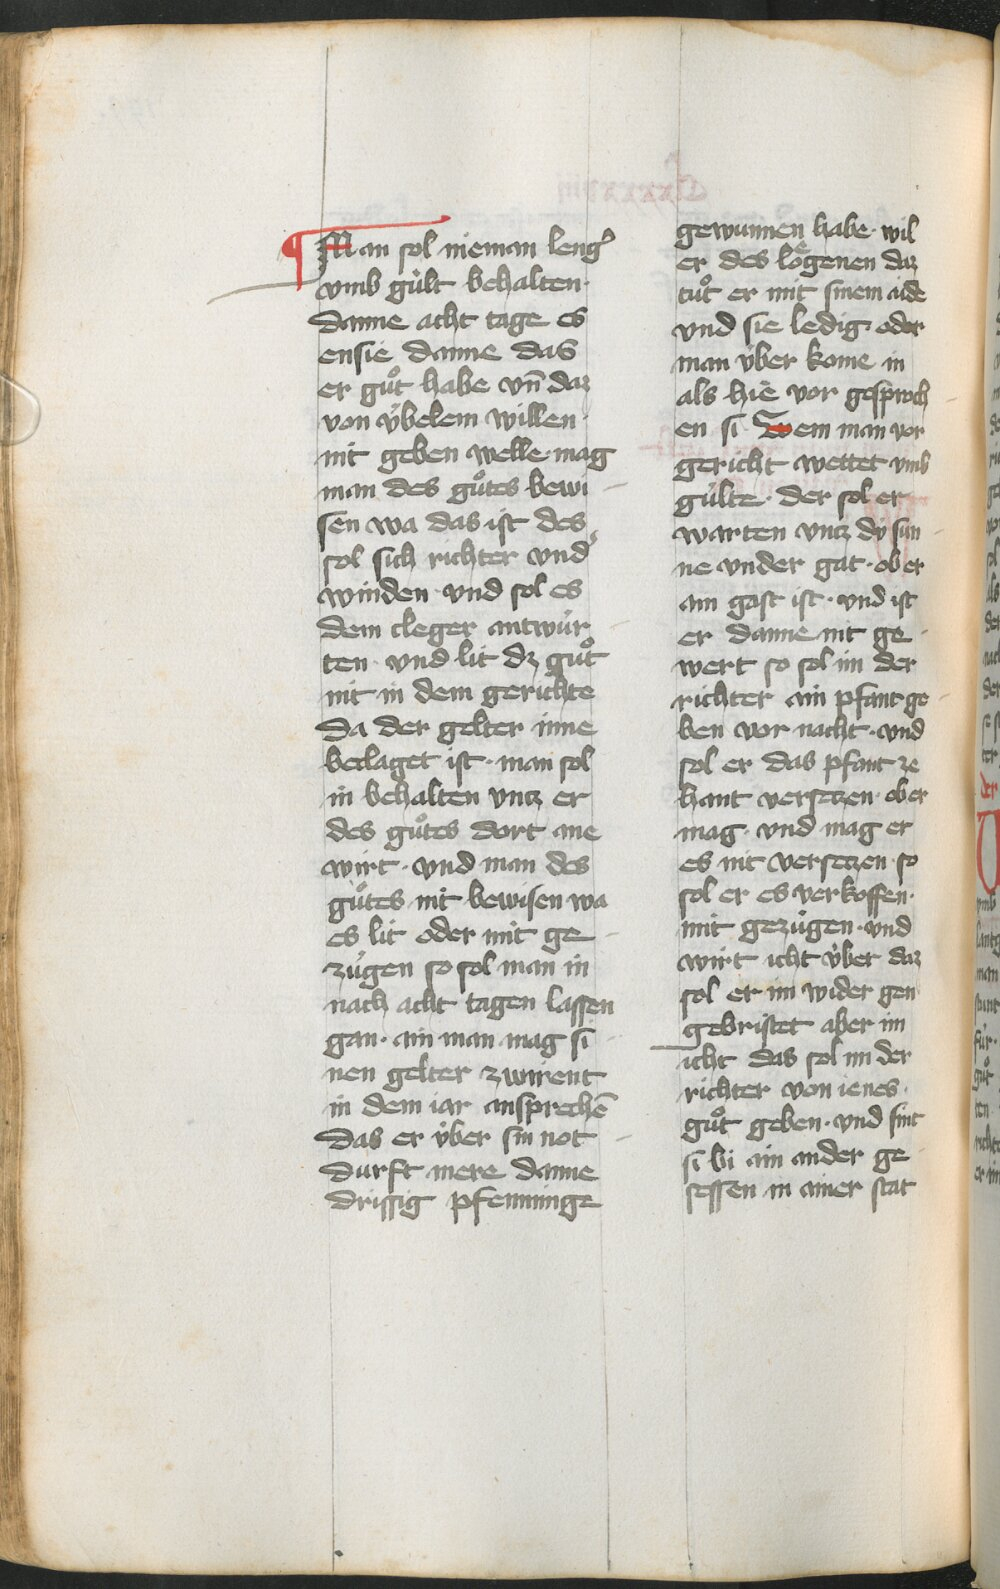 ¶ Man sol nieman leng᷑
vmb gült behalten·
danne acht tage es
ensie danne das
er guͦt habe vn̄ daz
von v̈belem willen·
nit geben welle· mag
man des guͦtes bewi
sen wa das ist des
sol sich richter vnd᷑
winden· vnd sol es
dem cleger antwúr
ten· vnd lit dz guͦt
nit in dem gerichte
da der gelter inne
beclaget ist· man sol
in behalten vntz er
des guͦtes dort ane
wirt· vnd man des
guͦtes nit bewisen wa
es lit oder mit ge
zúgen so sol man in
nach acht tagen lassen
gan· ain man mag si
nen gelter zwirent
in dem iar ansprechē
das er v̇ber sin not
durft mere danne
drissig pfenninge
gewunnen habe· wil
er des loͤgenen daz
tuͦt er mit sinem aide
vnd sie ledig· oder
man v̇ber kome in
als hie vor gesproch
en si Wem man vor
gericht wettet vmb
gülte· der sol er
warten vntz dv sun
ne vnder gat· ob er
ain gast ist· vnd ist
er danne nit ge
wert so sol im der
richter ain pfant ge
ben vor nacht· vnd
sol er das pfant ze
hant versetzen· ob er
mag· vnd mag er
es nit versetzen· so
sol er es verkoffen·
mit gezúgen· vnd
wirt icht v̇ber daz
sol er im wider gen
gebristet aber im
icht das sol im der
richter von ienes·
guͦt geben· vnd sint
si bi ain ander ge
sessen in ainer stat